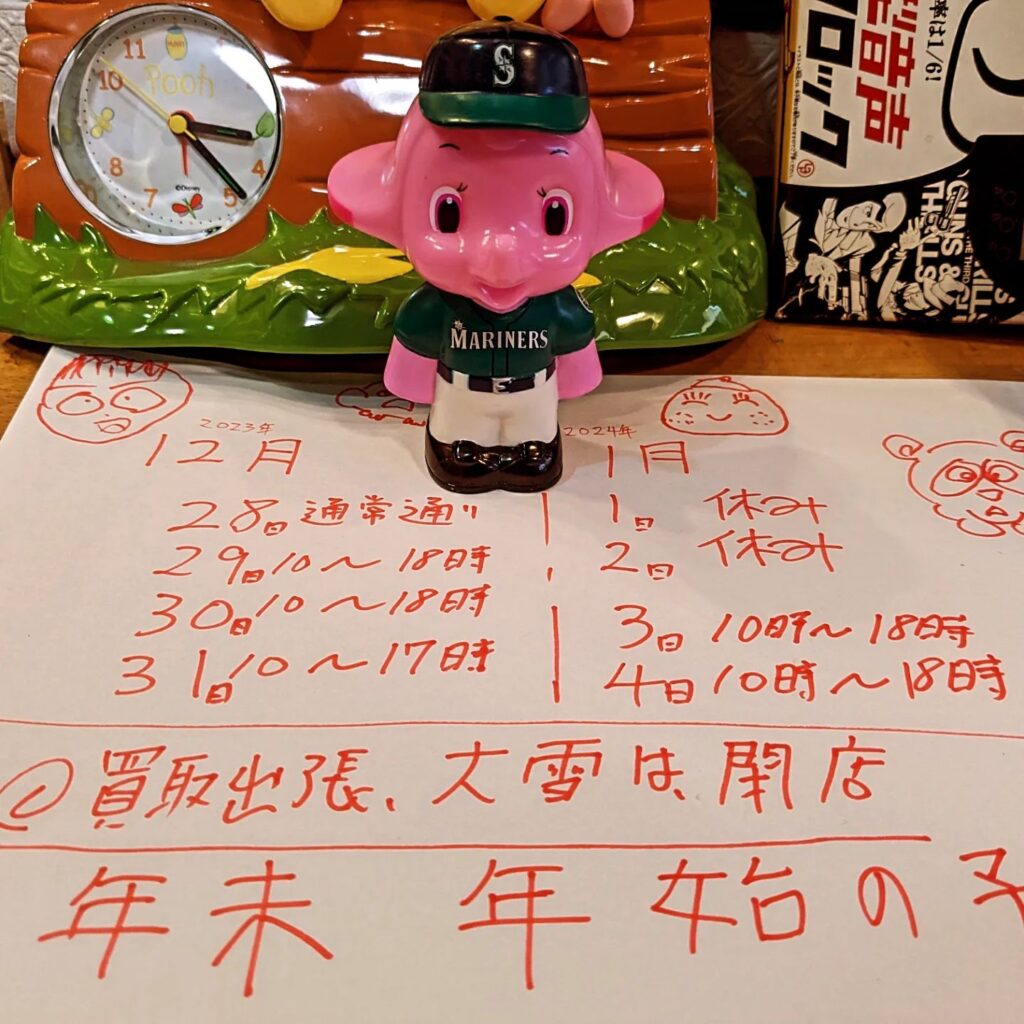 11
10
8
7
5
4
Pooh
©Disney
S
MARINERS
音声
ロック
は1/6!
GUNS &
THE THIRD
2023年
12月
28日 通常通り
29日 10〜18時
30日 10〜18時
31日 10〜17時
2024年
1月
1日 休み
2日 休み
3日 10時〜18時
4日 10時〜18時
買取出張、大雪は、閉店
年未 年始の